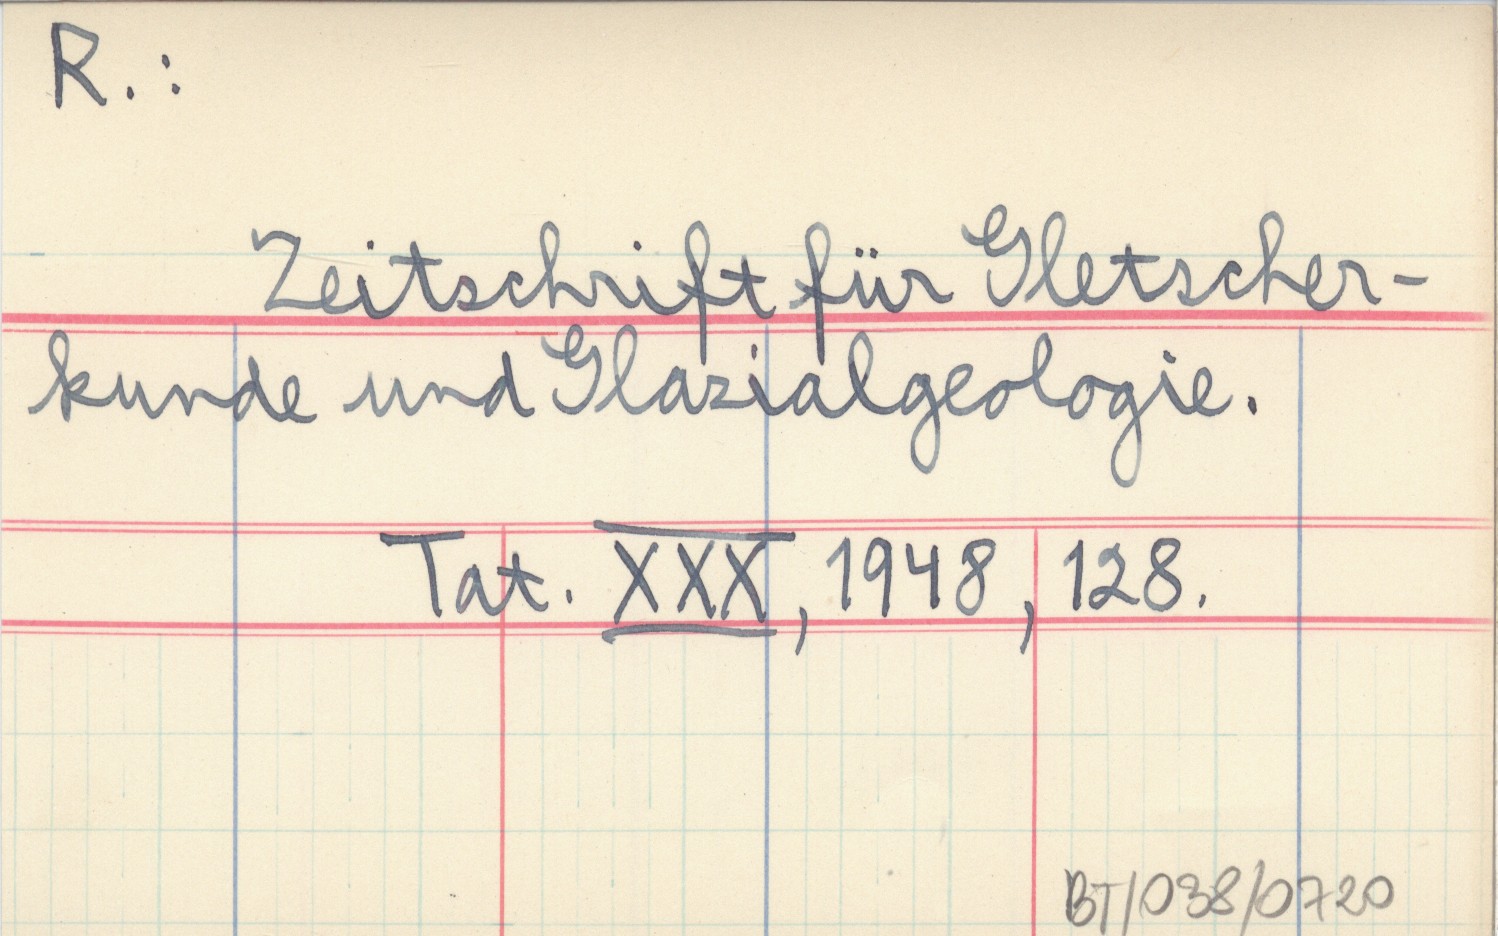 R.:
Zeitschrift für Gletscher-
kunde und Glazialgeologie.
Tat. XXX, 1948, 128.
BT/038/0720